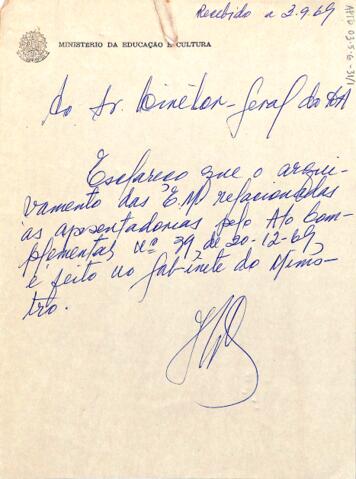 Recebido a 2.9.69
MINISTÉRIO DA EDUCAÇÃO E CULTURA
Ao Sr. Diretor-Geral do DA
Esclareço que o arqui-
vamento das E.M. relacionadas
às aposentadorias pelo Ato Com-
plementar nº 39 de 20-12-69
é feito no Gabinete do Minis-
tro.